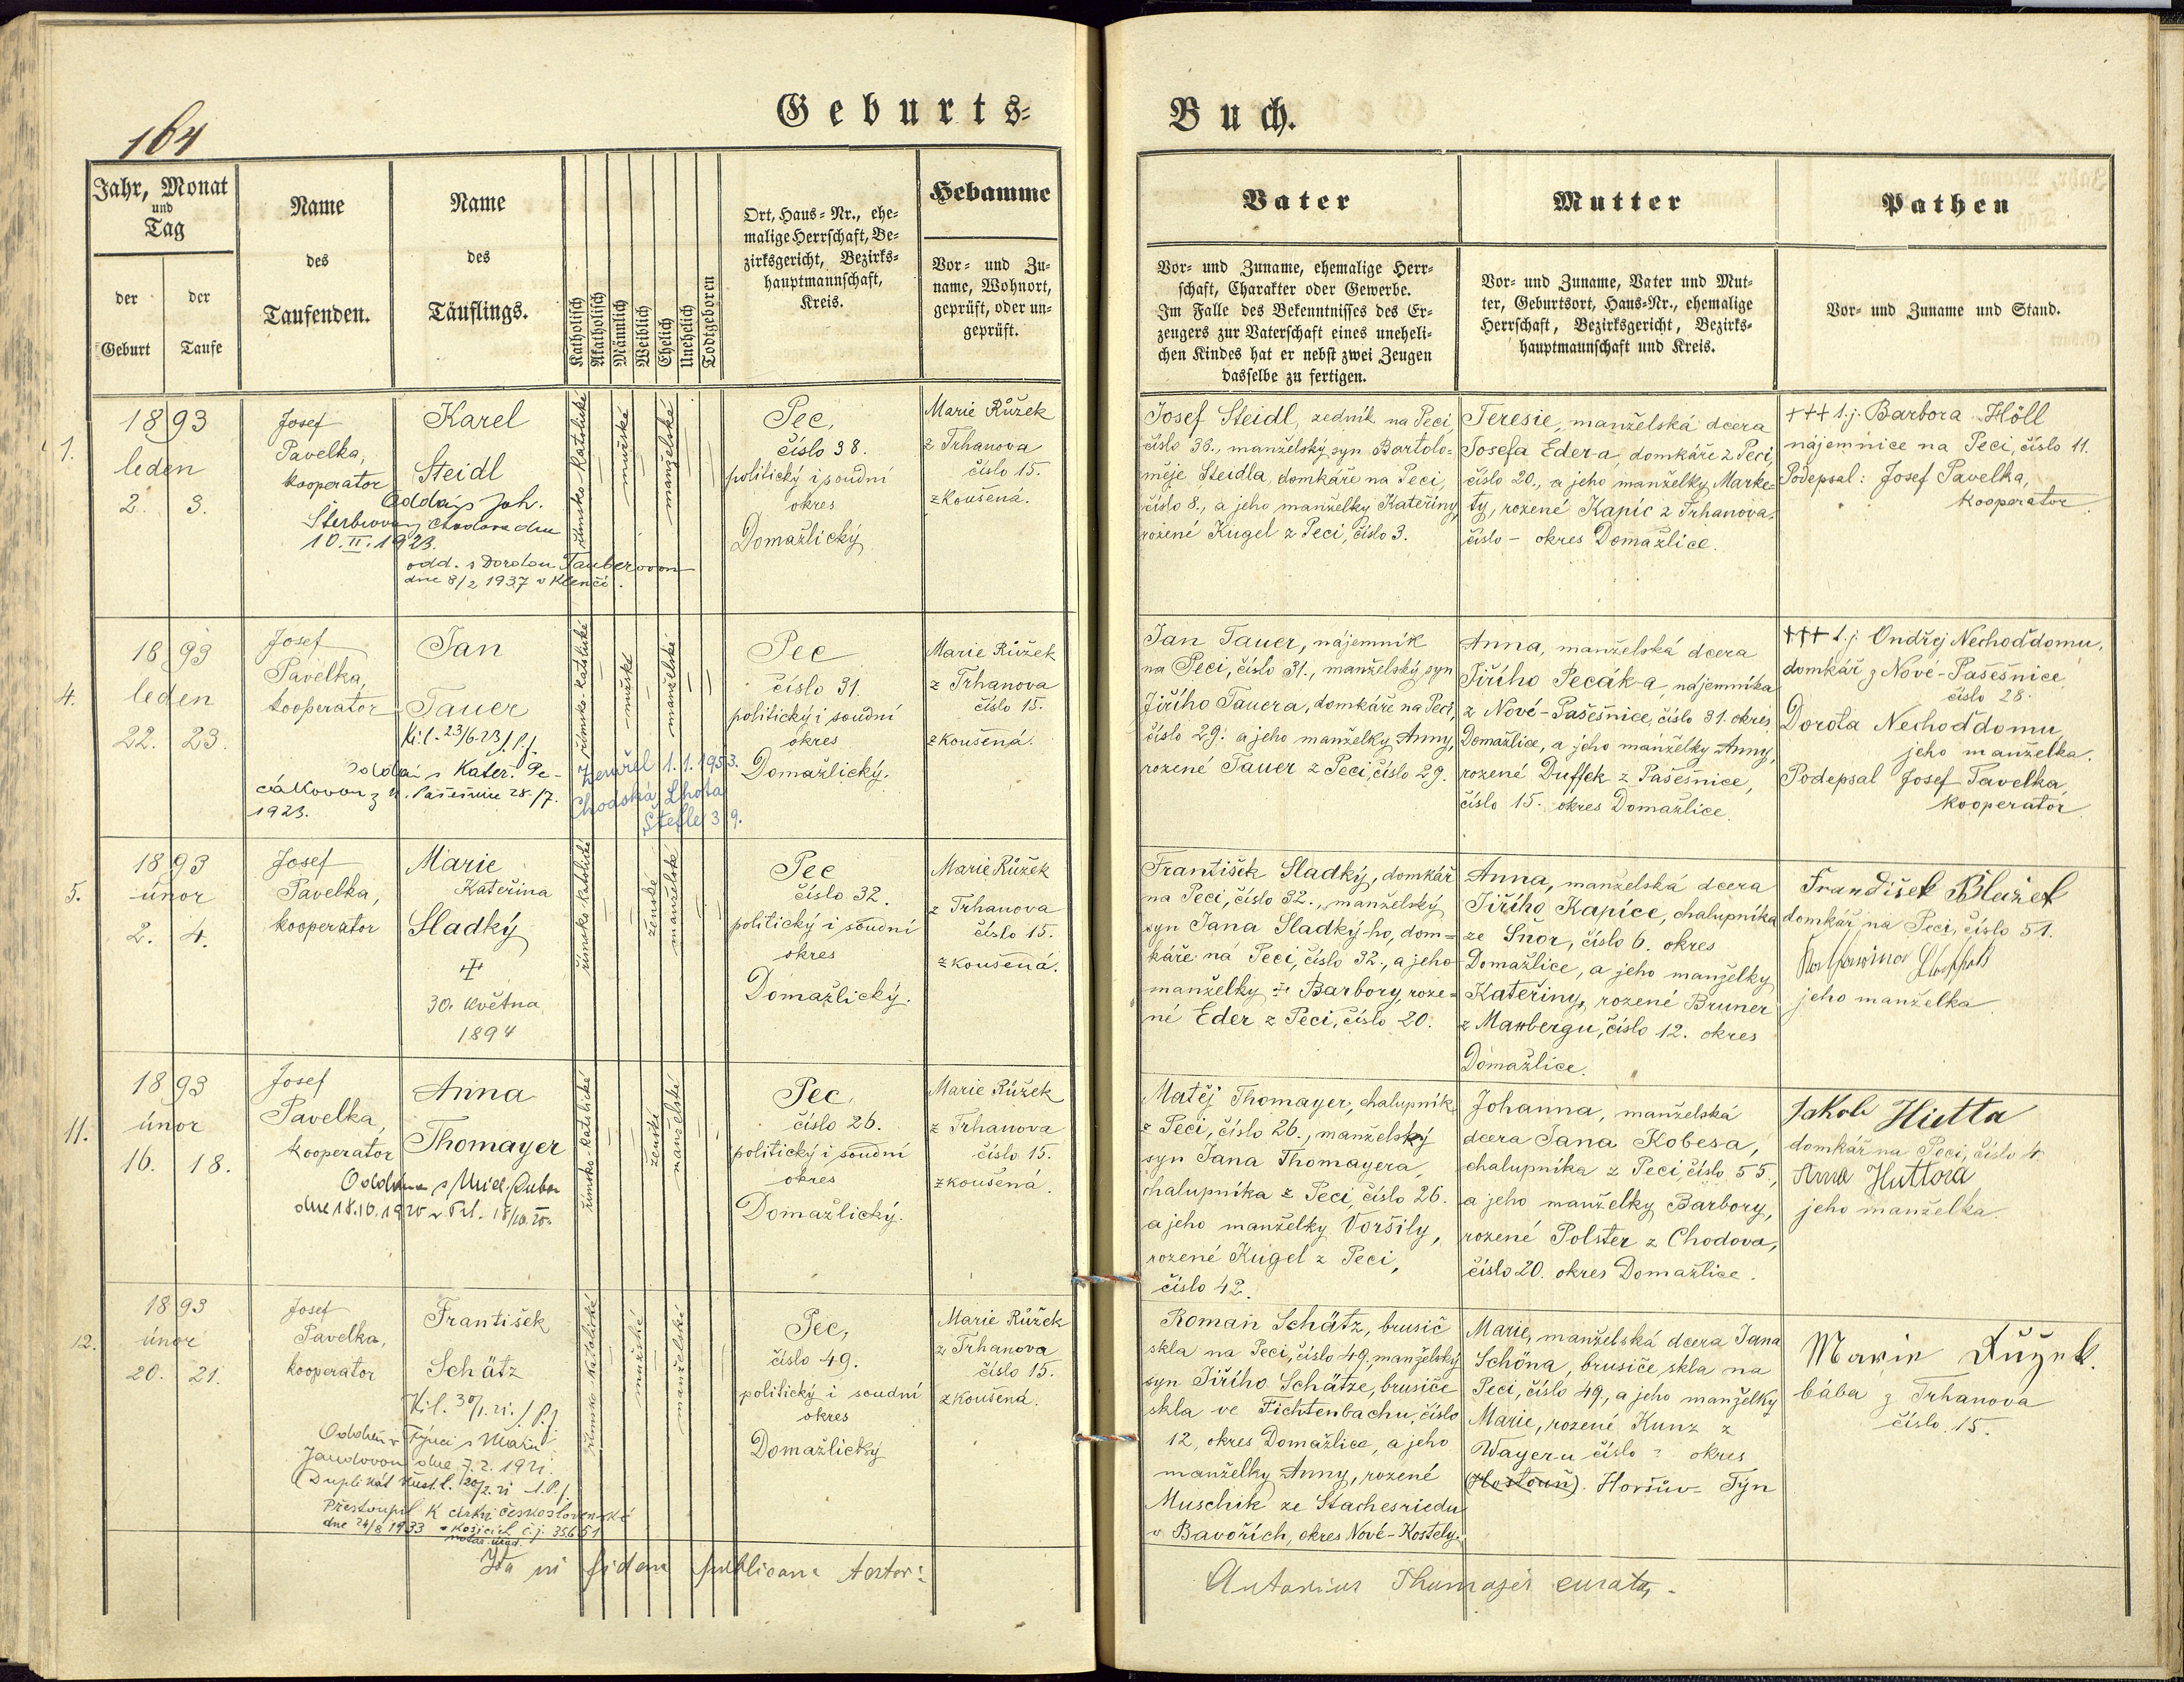 164
Geburts-
Buch.
Jahr, Monat
und
Tag
der
Geburt
der
Taufe
Name
des
Taufenden.
Name
des
Täuflings.
Katholisch
Akatholisch
Männlich
Weiblich
Ehelich
Unehelich
Todtgeboren
Ort, Haus-Nr., ehe-
malige Herrschaft, Be-
zirksgericht, Bezirks-
hauptmannschaft,
Kreis.
Hebamme
Vor- und Zu-
name, Wohnort,
geprüft, oder un-
geprüft.
Vater
Vor- und Zuname, ehemalige Herr-
schaft, Charakter oder Gewerbe.
Im Falle des Bekenntnisses des Er-
zeugers zur Vaterschaft eines uneheli-
chen Kindes hat er nebst zwei Zeugen
dasselbe zu fertigen.
Mutter
Vor- und Zuname, Vater und Mut-
ter, Geburtsort, Haus-Nr., ehemalige
Herrschaft, Bezirksgericht, Bezirks-
hauptmannschaft und Kreis.
Pathen
Vor- und Zuname und Stand.
1.
1893
leden
2. 3.
Josef
Pavelka,
kooperator
Karel
Steidl
Oddán s Joh.
10.II.1923.
odd. s Dorotou Tauberovou
dne 8/2 1937 v Klenčí.
římsko-katolické
mužské
manželské
Pec,
číslo 38.
politický i soudní
okres
Domažlický
Marie Růžek
z Trhanova
číslo 15.
zkoušená.
Josef Steidl, zedník na Peci,
číslo 38., manželský syn Bartolo-
měje Steidla, domkáře na Peci,
číslo 8., a jeho manželky Kateřiny
rozené Kugel z Peci, číslo 3.
Teresie, manželská dcera
Josefa Eder-a, domkáře z Peci,
číslo 20., a jeho manželky Marke-
ty, rozené Kapic z Trhanova,
číslo - okres Domažlice.
+++ t.j. Barbora Höll
nájemnice na Peci, číslo 11.
Podepsal: Josef Pavelka,
kooperator.
4.
1893
leden
22. 23.
Josef
Pavelka,
kooperator
Jan
Tauer
K.l. 23/6.23 J.P.j
Oddán s Kateř. Pe-
cákovou z N. Pašešnice 28./7.
1923.
římsko-katolické
mužské
manželské
Zemřel 1.1.1953.
Chodská Lhota
Pec
číslo 31.
politický i soudní
okres
Domažlický.
Marie Růžek
z Trhanova
číslo 15.
zkoušená.
Jan Tauer, nájemník
na Peci, číslo 31., manželský syn
Jiřího Tauera, domkáře na Peci,
číslo 29. a jeho manželky Anny,
rozené Tauer z Peci, číslo 29.
Anna, manželská dcera
Jiřího Pecák-a, nájemníka
z Nové-Pašešnice, číslo 31. okres
Domažlice, a jeho manželky Anny,
rozené Duffek z Pašešnice,
číslo 15. okres Domažlice.
+++ t.j. Ondřej Nechoďdomu,
domkář z Nové-Pašešnice,
číslo 28.
Dorota Nechoďdomu,
jeho manželka.
Podepsal Josef Pavelka,
kooperator
5.
1893
únor
2. 4.
Josef
Pavelka,
kooperator
Marie
Kateřina
Sladký
30. května
1894
římsko-katolické
ženské
manželské
Pec
číslo 32.
politický i soudní
okres
Domažlický.
Marie Růžek
z Trhanova
číslo 15.
zkoušená.
František Sladký, domkář
na Peci, číslo 32., manželský
syn Jana Sladký-ho, dom-
káře na Peci, číslo 32., a jeho
manželky + Barbory, roze-
né Eder z Peci, číslo 20.
Anna, manželská dcera
Jiřího Kapice, chalupníka
ze Snor, číslo 6. okres
Domažlice, a jeho manželky
Kateřiny, rozené Bruner
z Maxbergu, číslo 12. okres
Domažlice.
František Blažek
domkář na Peci, číslo 51.
jeho manželka
11.
1893
únor
16. 18.
Josef
Pavelka,
kooperator
Anna
Thomayer
Oddána s Mich.
dne 18.10.1920
římsko-katolické
ženské
manželské
Pec,
číslo 26.
politický i soudní
okres
Domažlický.
Marie Růžek
z Trhanova
číslo 15.
zkoušená.
Matěj Thomayer, chalupník
z Peci, číslo 26., manželský
syn Jana Thomayera,
chalupníka z Peci, číslo 26.
a jeho manželky Voršily,
rozené Kugel z Peci,
číslo 42.
Johanna, manželská
dcera Jana Kobesa,
chalupníka z Peci, číslo 55.,
a jeho manželky Barbory,
rozené Polster z Chodova,
číslo 20. okres Domažlice.
Jakob Hutta
domkář na Peci, číslo 4
Anna Huttova
jeho manželka.
12.
1893
únor
20. 21.
Josef
Pavelka,
kooperator
František
Schätz
K.l. 30/1.21. J.P.j
Oddán v Týnci s Marií
Jandovou dne 7.2. 1921.
Přestoupil k církvi československé
dne 24/8 1933 v Košicích č.j. 35651
římsko-katolické
mužské
manželské
Pec,
číslo 49.
politický i soudní
okres
Domažlický
Marie Růžek
z Trhanova
číslo 15.
zkoušená.
Roman Schätz, brusič
skla na Peci, číslo 49, manželský
syn Jiřího Schätze, brusiče
skla ve Fichtenbachu, číslo
12, okres Domažlice, a jeho
manželky Anny, rozené
Muschik ze Stachesriedu
v Bavořích, okres Nové-Kostely.
Marie, manželská dcera Jana
Schöna, brusiče skla na
Peci, číslo 49, a jeho manželky
Marie, rozené Kunz z
Wayeru číslo ? okres
(Hostouň). Horšův-Týn
Marie Růžek.
bába z Trhanova
číslo 15.
Ita in fidem publicam testor:
Antonius Thomayer curatus.